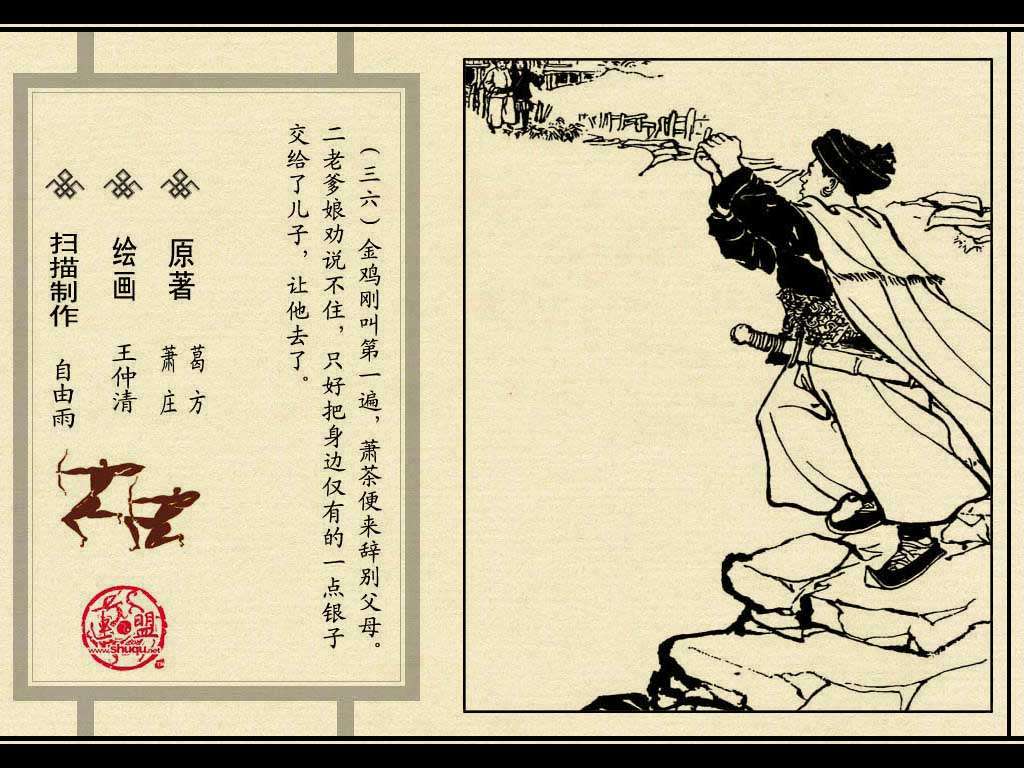 （三六）金鸡刚叫第一遍，萧茶便来辞别父母。
二老爹娘劝说不住，只好把身边仅有的一点银子
交给了儿子，让他去了。
原著 葛方
萧庄
绘画 王仲清
扫描制作 自由雨
連盟
www.shuqu.net